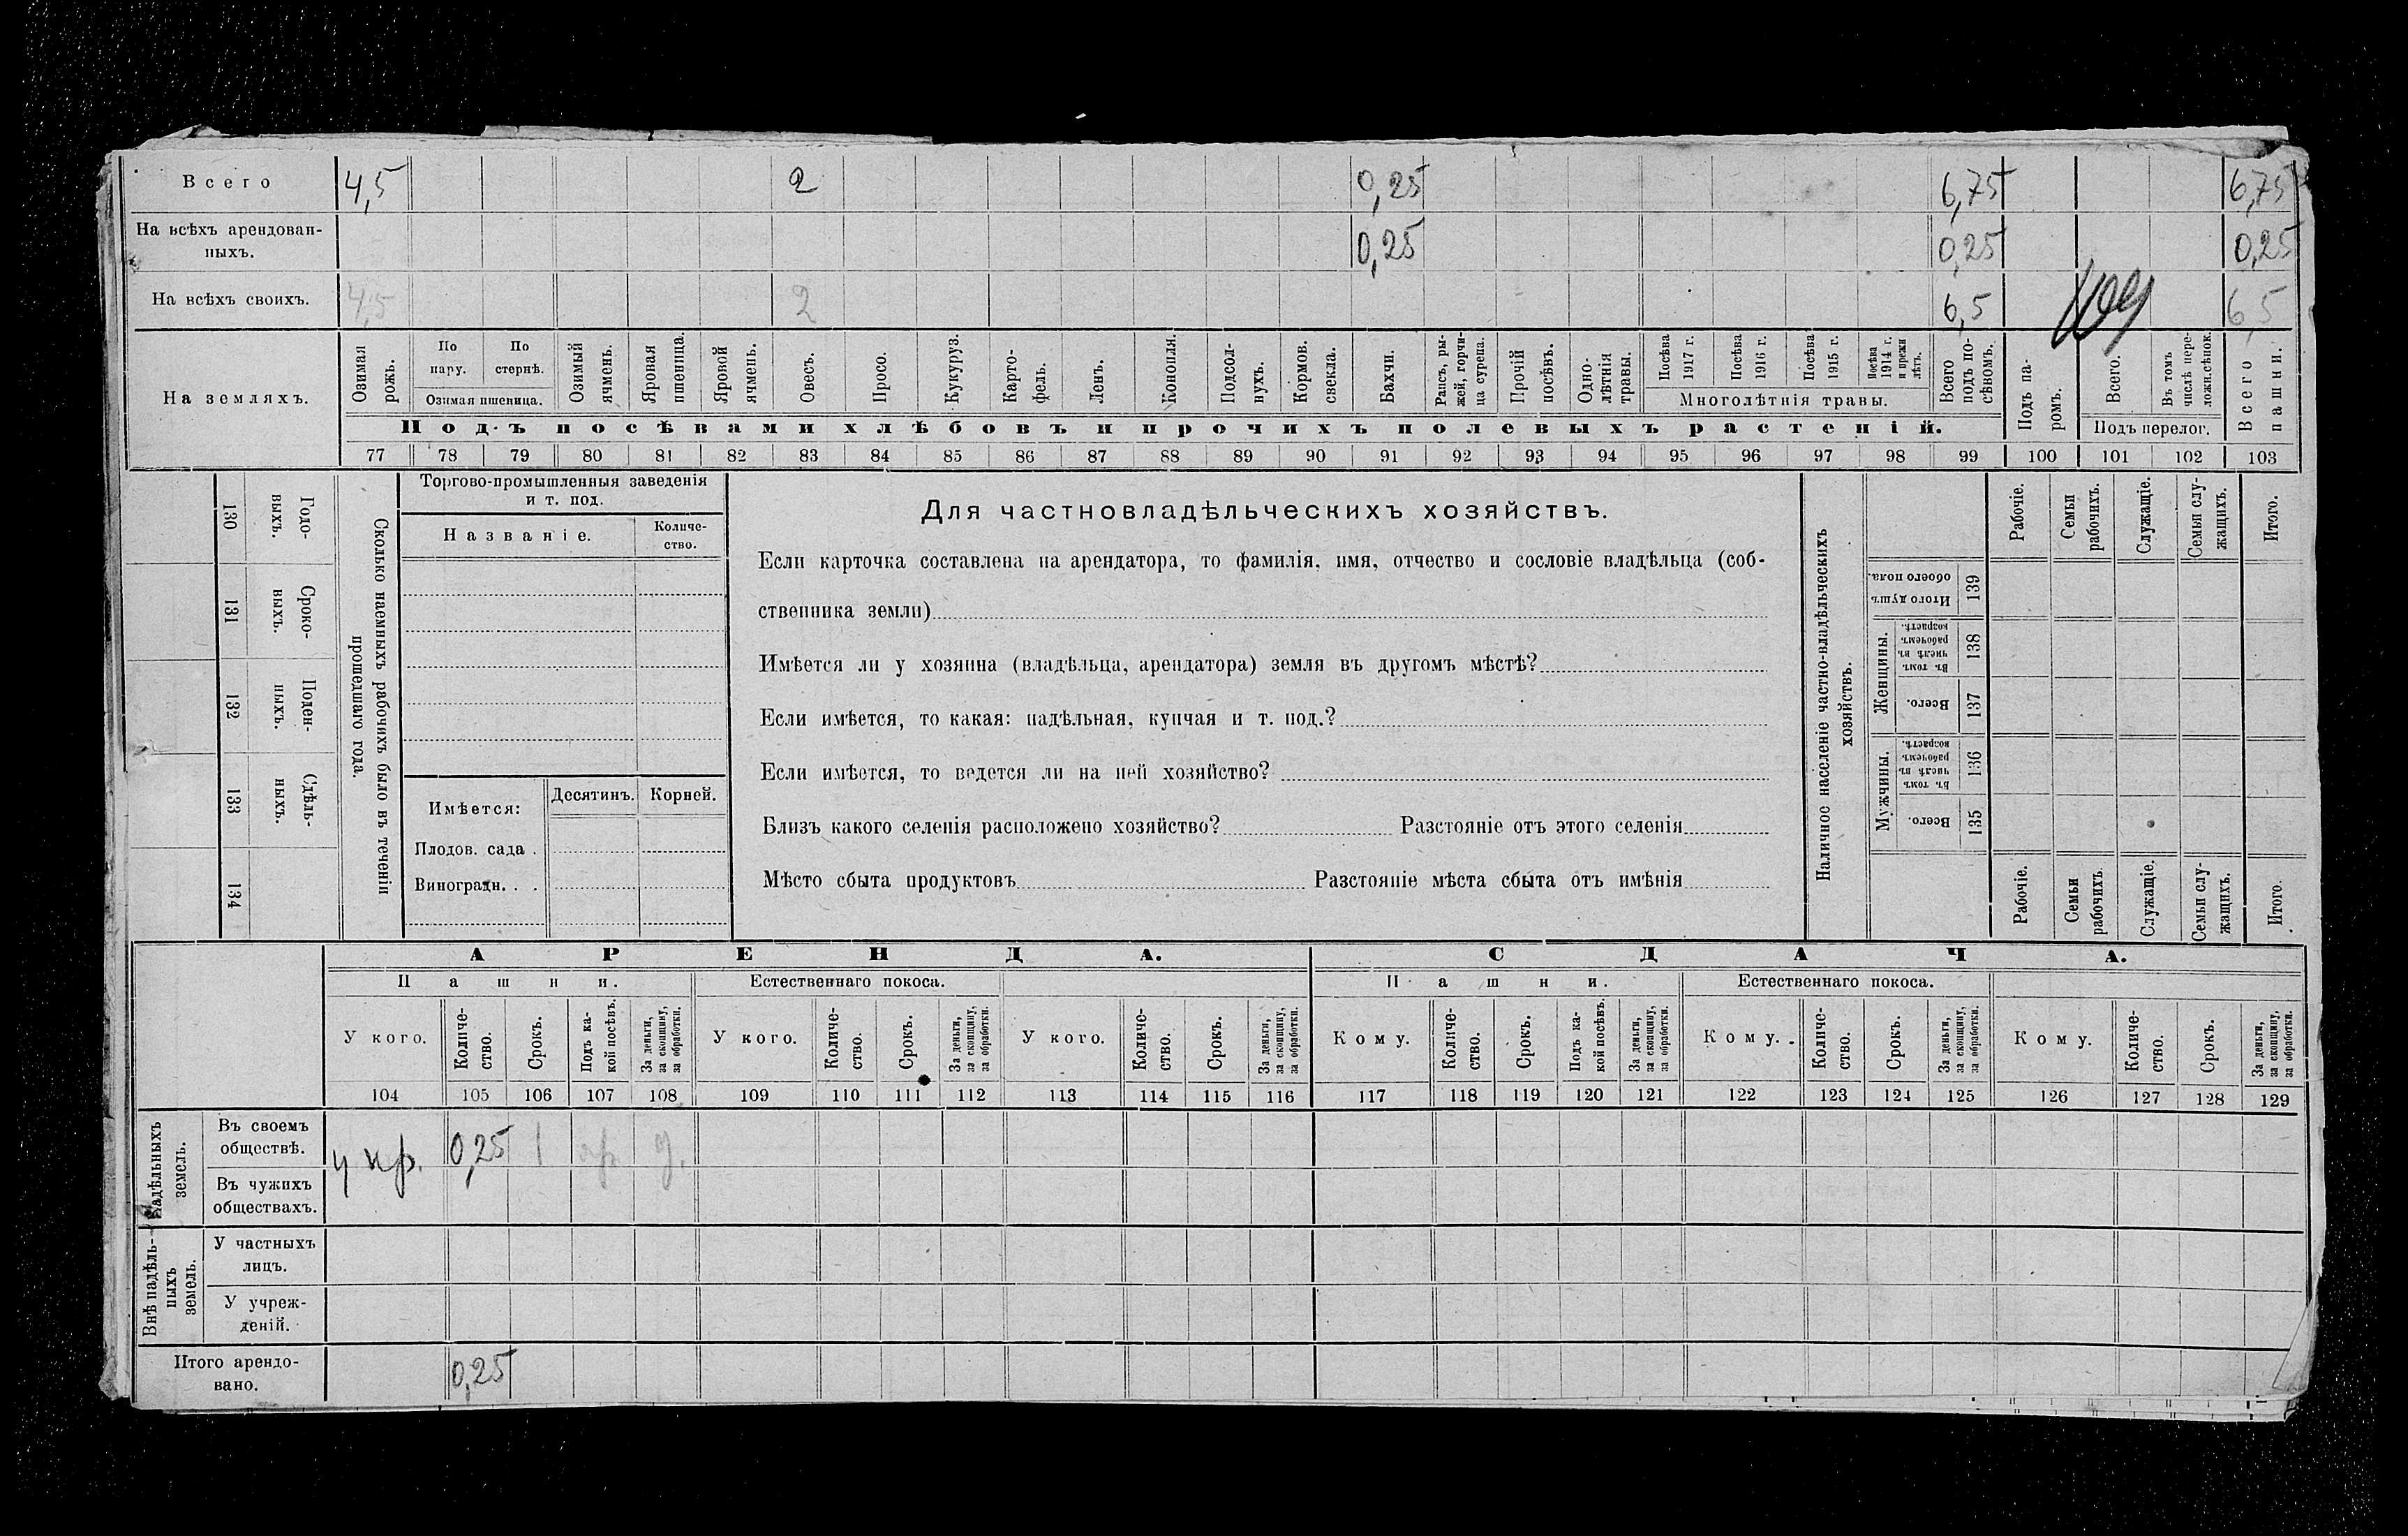 Всего 4,5 2 0,25 6,75 6,75
На всѣхъ арендован-
ныхъ. 0,25 0,25 0,25
На всѣхъ своихъ. 4,5 2 6,5 6,5
109
На земляхъ.
Озимая рожь.
По пару.
По стернѣ.
Озимая пшеница.
Озимый ячмень.
Яровая пшеница.
Яровой ячмень.
Овесъ.
Просо.
Кукуруз.
Карто-
фель.
Ленъ.
Конопля.
Подсол-
нухъ.
Кормов. свекла.
Бахчи.
Рапсъ, ры-
жей, горчи-
ца сурепа.
Прочій посѣвъ.
Одно-
лѣтнія травы.
Посѣва 1917 г.
Посѣва 1916 г.
Посѣва 1915 г.
Посѣва 1914 г. и прежн лѣтъ.
Многолѣтнія травы.
Всего подъ по-
сѣвомъ.
Подъ посѣвами хлѣбовъ и прочихъ полевыхъ растеній.
Подъ па-
ромъ.
Всего.
Въ томъ числѣ пере-
ложн.сѣнок.
Подъ перелог.
Всего пашни.
77 78 79 80 81 82 83 84 85 86 87 88 89 90 91 92 93 94 95 96 97 98 99 100 101 102 103
130 Годо-
выхъ.
131 Сроко-
выхъ.
132 Поден-
ныхъ.
133 Сдѣль-
ныхъ.
134
Сколько наемныхъ рабочихъ было въ теченіи
прошедшаго года.
Торгово-промышленныя заведенія
и т. под.
Названіе.
Количе-
ство.
Имѣется:
Десятинъ. Корней.
Плодов. сада .
Виноградн. . .
Для частновладѣльческихъ хозяйствъ.
Если карточка составлена на арендатора, то фамилія, имя, отчество и сословіе владѣльца (соб-
ственника земли)
Имѣется ли у хозяина (владѣльца, арендатора) земля въ другомъ мѣстѣ?
Если имѣется, то какая: надѣльная, купчая и т. под.?
Если имѣется, то ведется ли на ней хозяйство?
Близъ какого селенія расположено хозяйство? Разстояніе отъ этого селенія
Мѣсто сбыта продуктовъ Разстояніе мѣста сбыта отъ имѣнія
Наличное населеніе частно-владѣльческихъ
хозяйствъ.
Рабочіе.
Семьи рабочихъ.
Служащіе.
Семьи слу-
жащихъ.
Итого.
Итого душъ обоего пола. 139
Женщины.
Въ томъ числѣ въ рабочемъ возрастѣ. 138
Всего. 137
Мужчины.
Въ томъ числѣ въ рабочемъ возрастѣ. 136
Всего. 135
Рабочіе.
Семьи рабочихъ.
Служащіе.
Семьи слу-
жащихъ.
Итого.
АРЕНДА. СДАЧА.
Пашни. Естественнаго покоса. Пашни. Естественнаго покоса.
У кого.
Количе-
ство.
Срокъ.
Подъ ка-
кой посѣвъ.
За деньги, за скопщину, за обработки.
У кого.
Количе-
ство.
Срокъ.
За деньги, за скопщину, за обработки.
У кого.
Количе-
ство.
Срокъ.
За деньги, за скопщину, за обработки.
Кому.
Количе-
ство.
Срокъ.
Подъ ка-
кой посѣвъ.
За деньги, за скопщину, за обработки.
Кому.
Количе-
ство.
Срокъ.
За деньги, за скопщину, за обработки.
Кому.
Количе-
ство.
Срокъ.
За деньги, за скопщину, за обработки.
104 105 106 107 108 109 110 111 112 113 114 115 116 117 118 119 120 121 122 123 124 125 126 127 128 129
Надѣльныхъ земель.
Въ своемъ
обществѣ. у кр. 0,25 1 яр. д.
Въ чужихъ
обществахъ.
Внѣ надѣль-
ныхъ земель.
У частныхъ
лицъ.
У учреж-
деній.
Итого арендо-
вано. 0,25